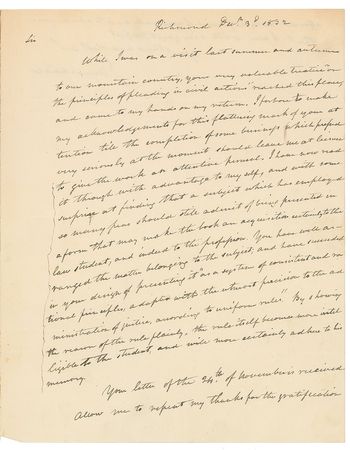 Richmond Decr 3d 1832
Sir
While I was on a visit last summer and autumn
to our mountain country, your very valuable treatise "on
the principles of pleading in civil actions" reached this place,
and came to my hands on my return. I forbore to make
my acknowledgements for this flattering mark of your at
tention till the completion of some business which pressed
very seriously at the moment should leave me at leisure
to give the work an attentive perusal. I have now read
it through with advantage to myself, and with some
surprize at finding that a subject which has employed
so many pens should still admit of being presented in
a form that may make the book an acquisition certainly to the
law student, and indeed to the profession. You have well ar-
ranged the matter belonging to the subject, and have succeeded
in your design of presenting it "as a system of consistent and ra
tional principles, adapted with the utmost precision to the ad
ministration of justice, according to uniform rules". By showing
the reason of the rule plainly, the rule itself becomes more intel
ligible to the student, and will more certainly adhere to his
memory.
Your letter of the 24th. of November is received
Allow me to repeat my thanks for the gratification